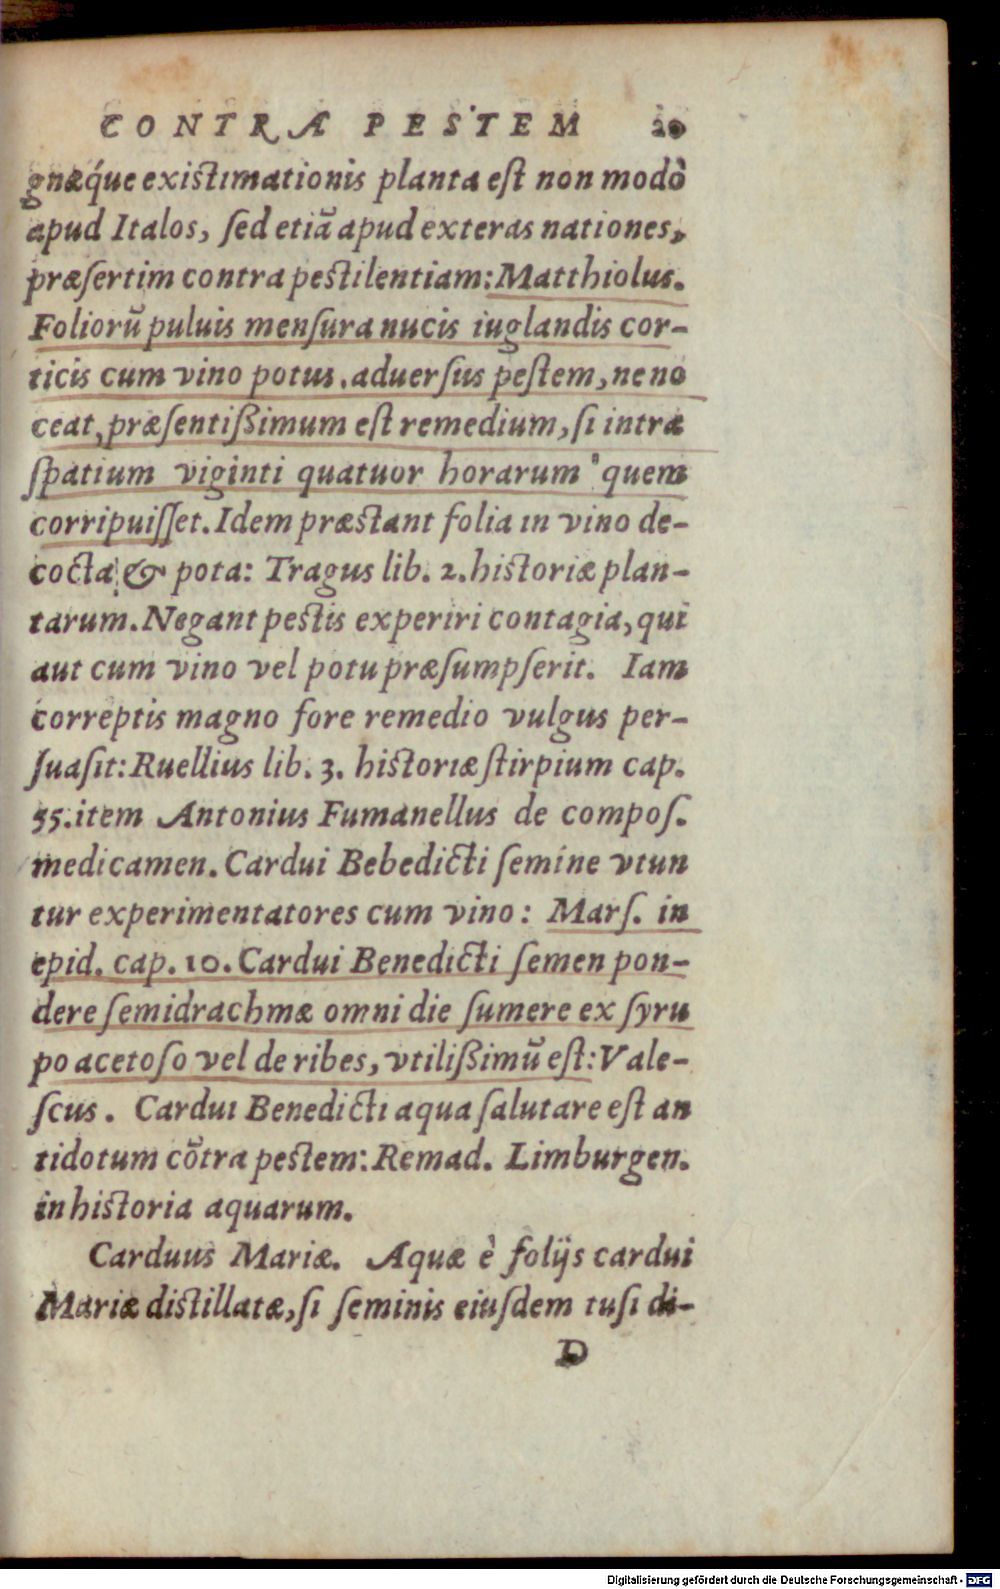 CONTRA PESTEM 20
gnæq́ue existimationis planta est non modò
apud Italos, ſed etiā apud exteras nationes,
præſertim contra pestilentiam: Matthiolus.
Foliorū puluis menſura nucis iuglandis cor-
ticis cum vino potus. aduerſus peſtem, ne no
ceat, præſentißimum eſt remedium, ſi intra
ſpatium viginti quatuor horarum quem
corripuiſſet. Idem præstant folia in vino de-
cocta & pota: Tragus lib. 2. historiæ plan-
tarum. Negant pestis experiri contagia, qui
aut cum vino vel potu præſumpſerit. Iam
correptis magno fore remedio vulgus per-
ſuaſit: Ruellius lib. 3. historiæ ſtirpium cap.
55. item Antonius Fumanellus de compoſ.
medicamen. Cardui Bebedicti ſemine vtun
tur experimentatores cum vino: Marſ. in
epid. cap. 10. Cardui Benedicti ſemen pon-
dere ſemidrachmæ omni die ſumere ex ſyru
po acetoſo vel de ribes, vtilißimū eſt: Vale-
ſcus. Cardui Benedicti aqua ſalutare eſt an
tidotum cōtra pestem: Remad. Limburgen.
in historia aquarum.
Carduus Mariæ. Aquæ è folijs cardui
Mariæ distillatæ, ſi ſeminis eiuſdem tuſi di-
D
Digitalisierung gefördert durch die Deutsche Forschungsgemeinschaft - DFG